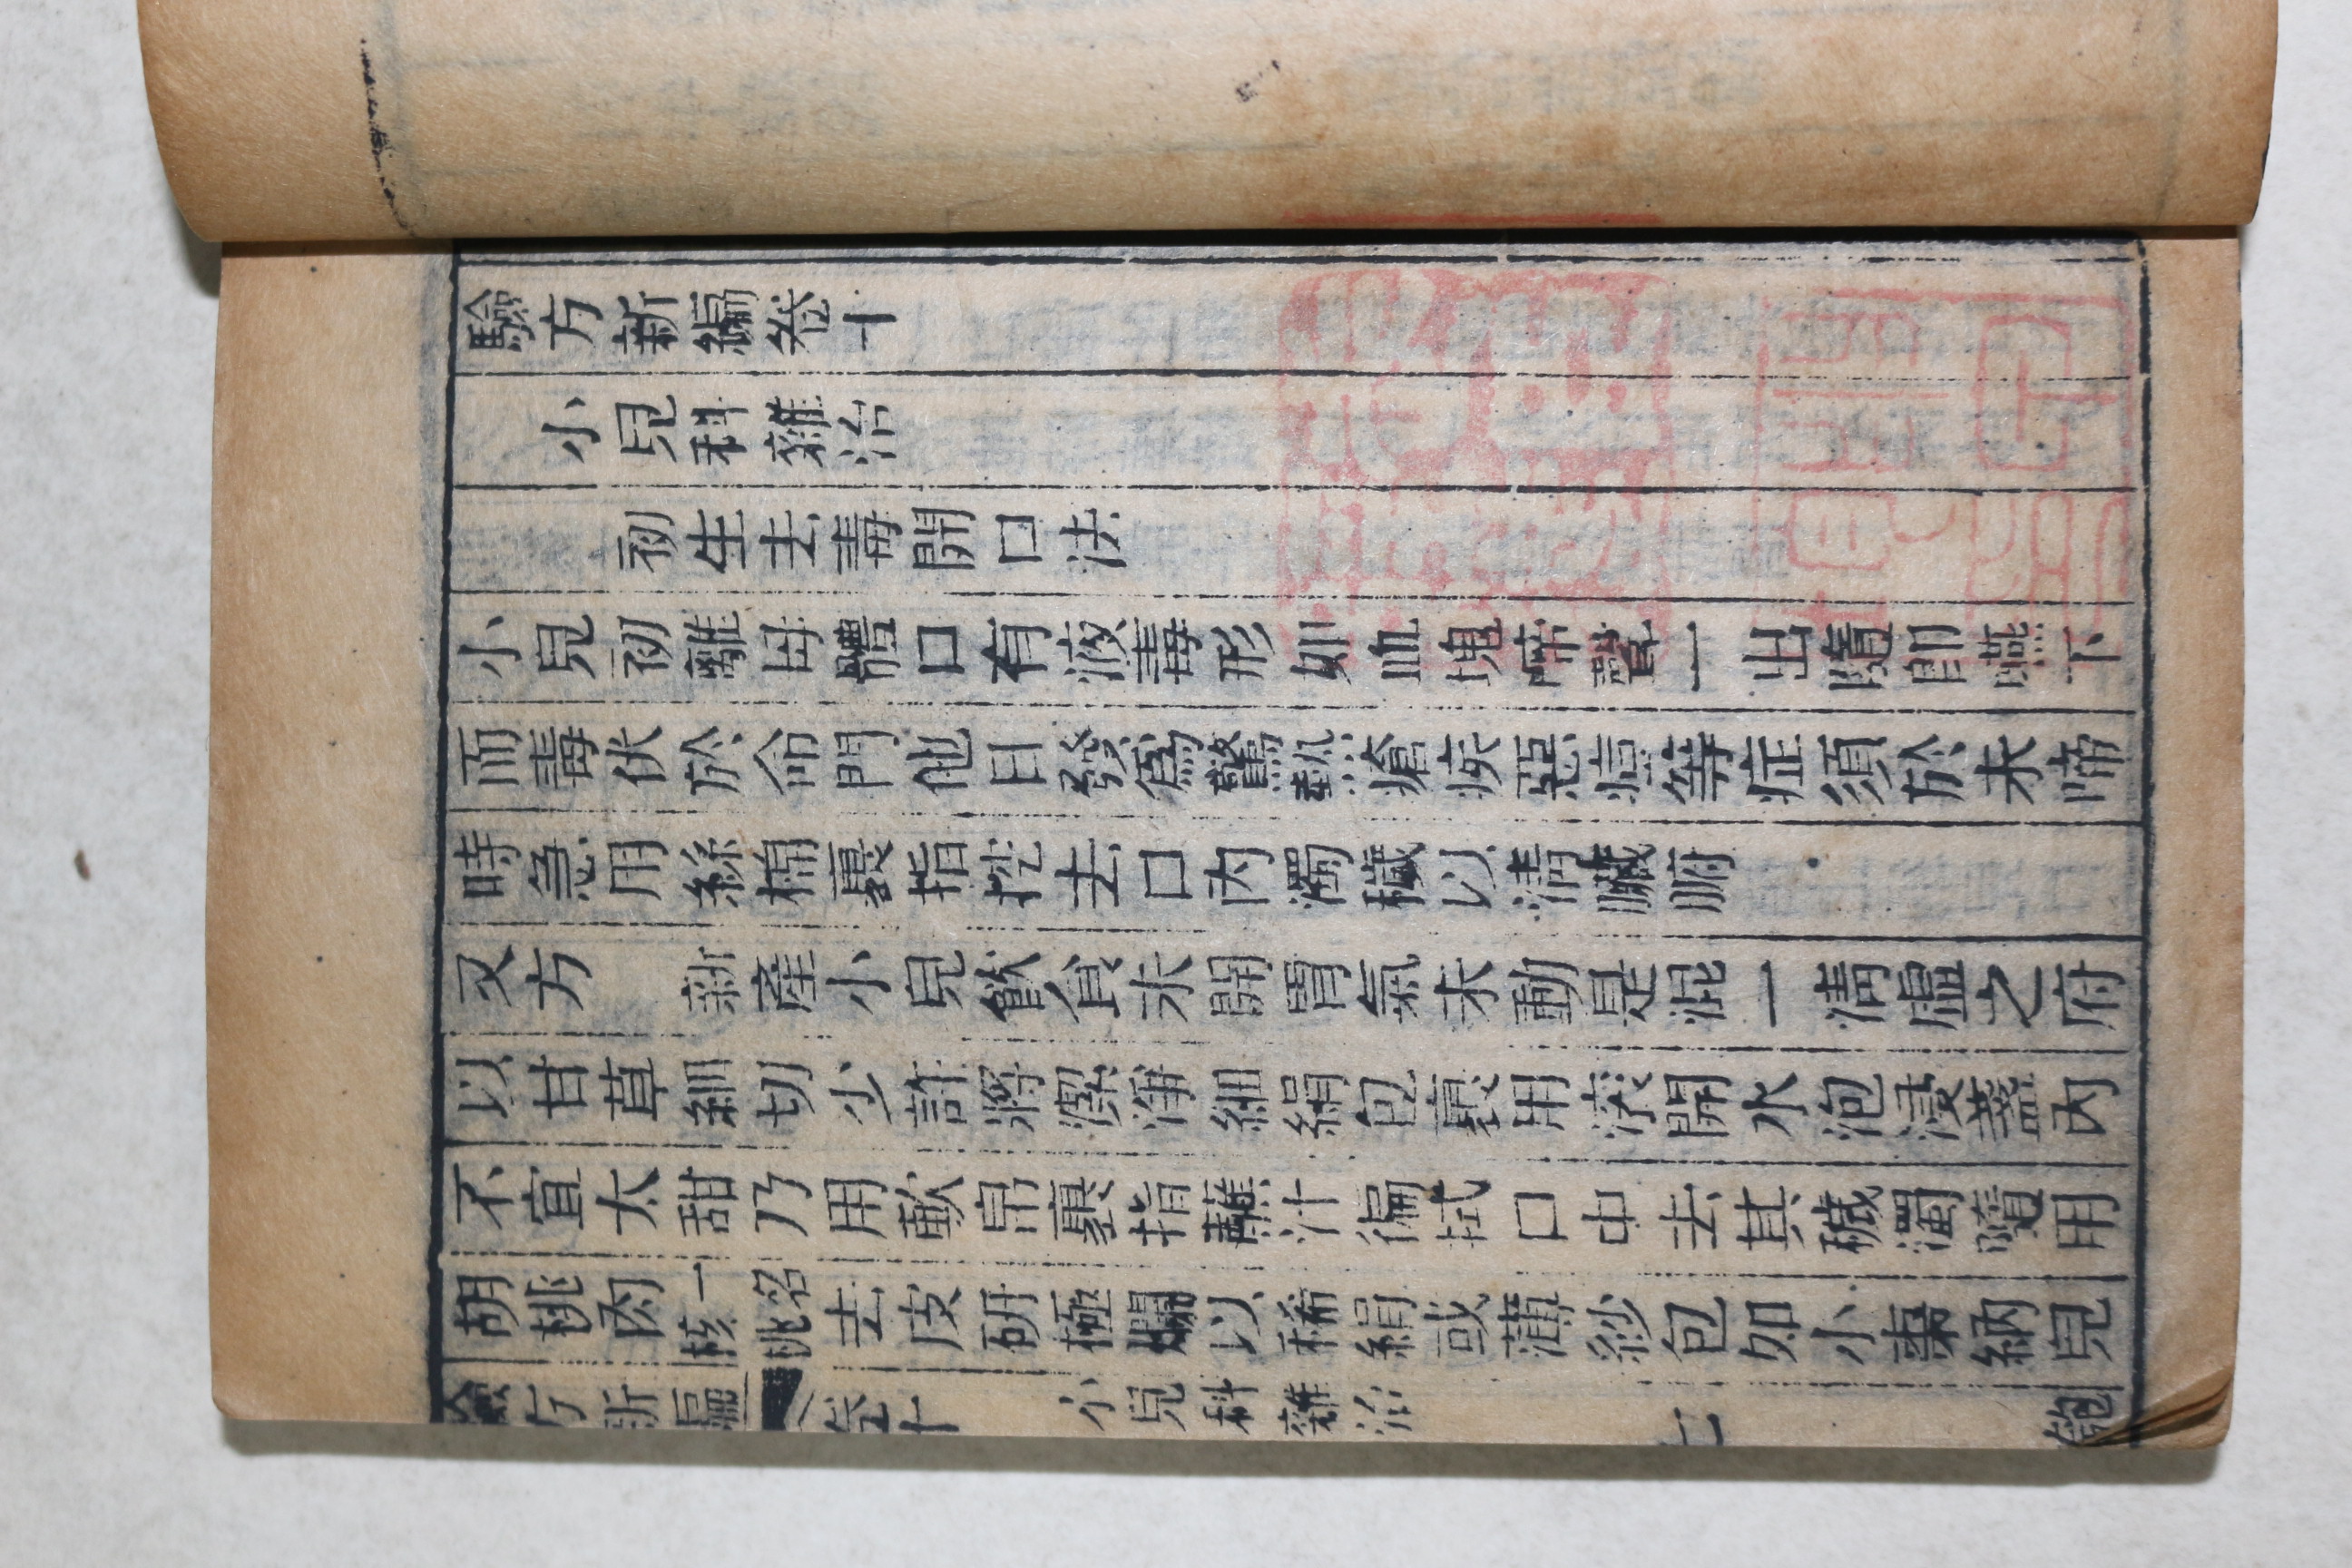 驗方新編卷十
小兒科雜治
初生去毒開口法
小兒初離母體口有液毒形如血塊啼聲一出隨即嚥下
而毒伏於命門他日發為驚熱瘡疾惡痘等症須於未啼
時急用絲棉裹指挖去口內濁穢以清臟腑
又方　新產小兒飲食未開胃氣未動是混一清虛之府
以甘草細切少許將潔淨細絹包裹用滚開水泡淺盞內
不宜太甜乃用軟帛裹指蘸汁徧拭口中去其穢濁隨用
胡桃肉一名核桃去皮研極爛以稀絹或薄紗包如小棗納兒
驗方新編　卷十　小兒科雜治　一